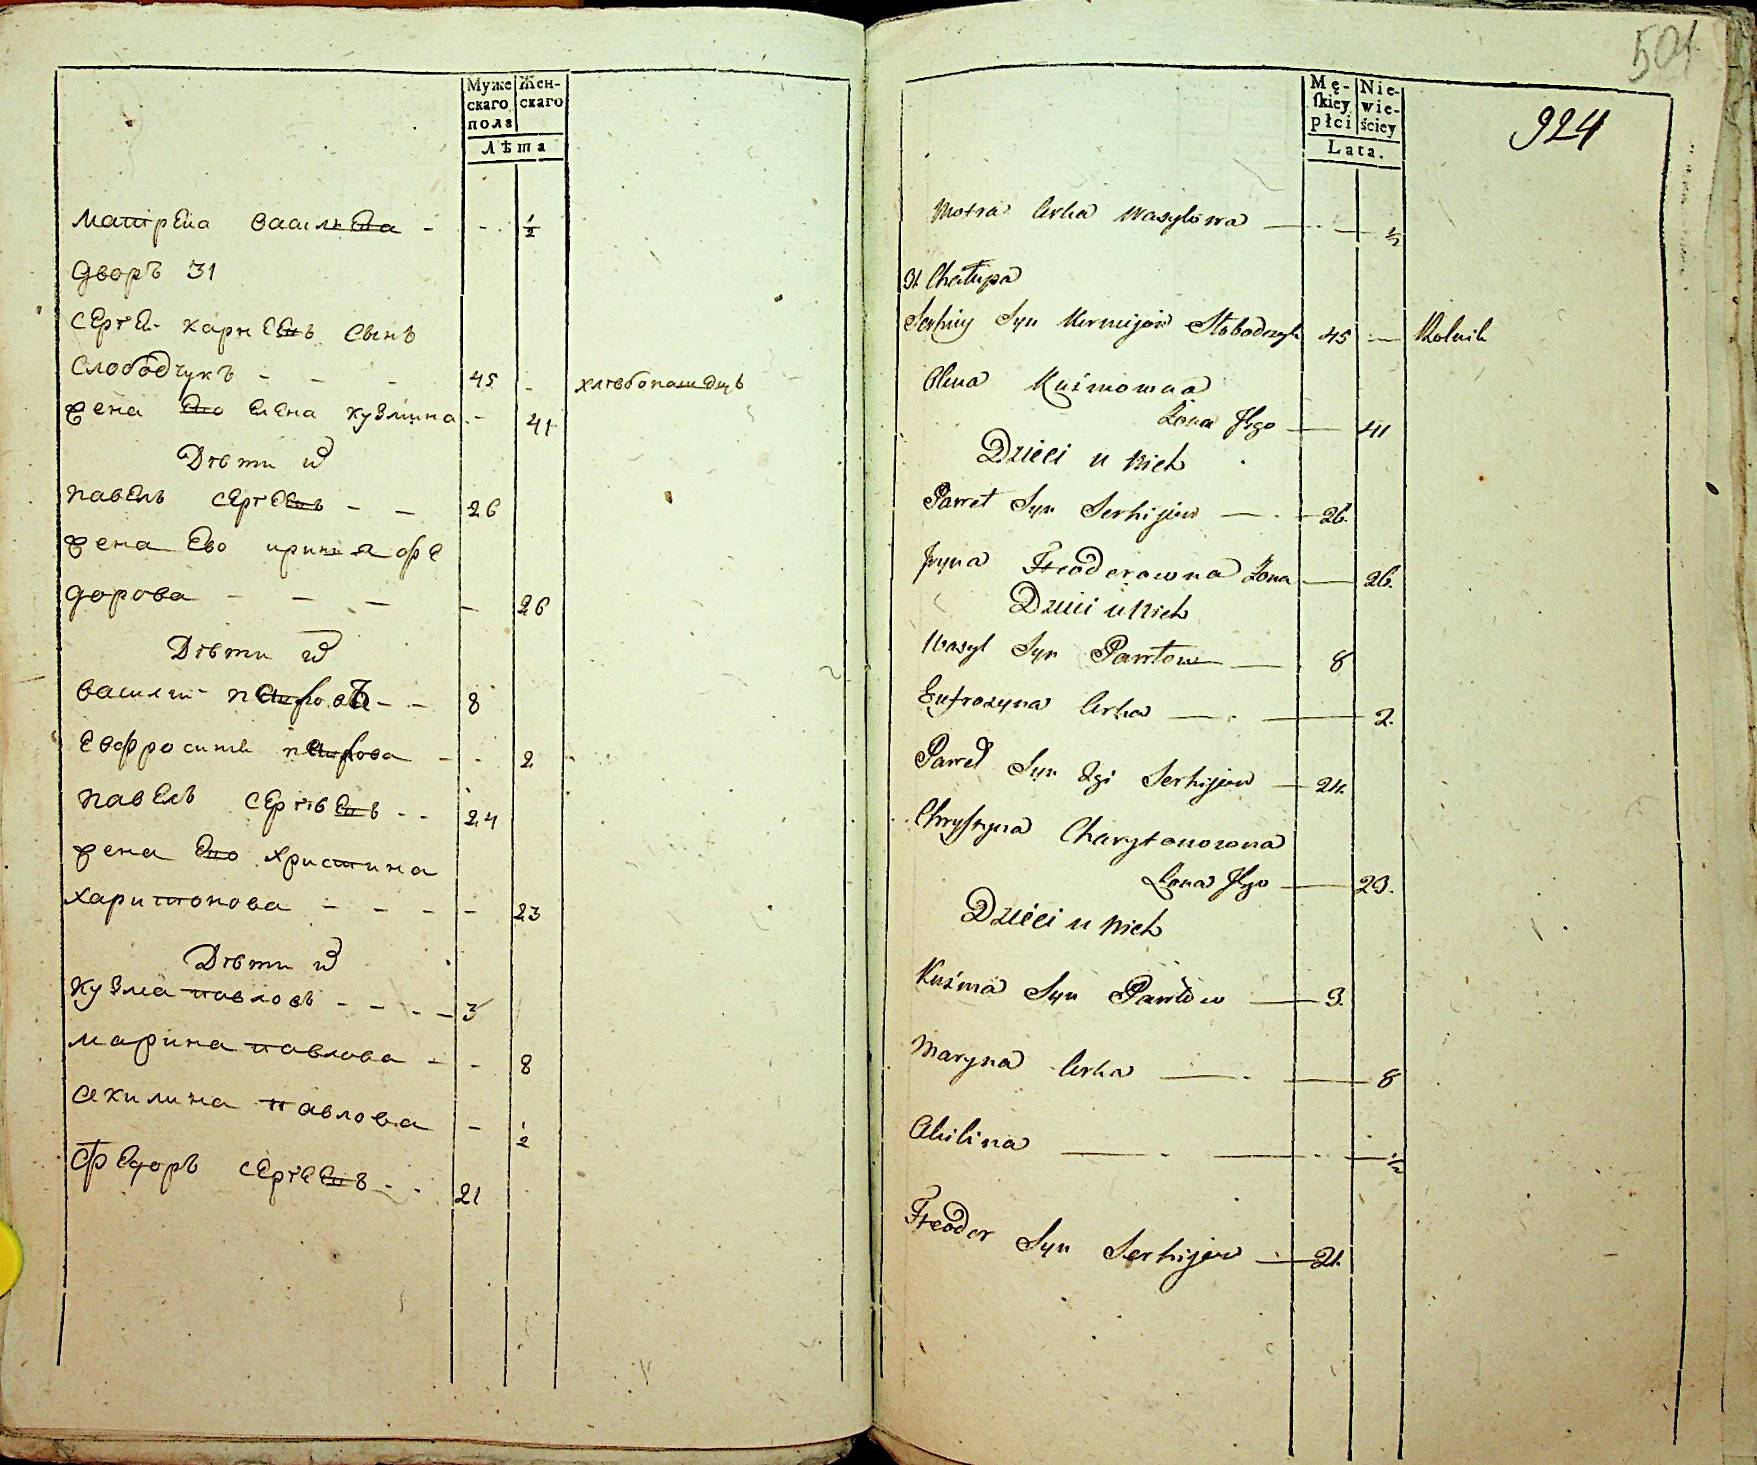 Муже
скаго
пола
Жен-
скаго
Лѣта
матрена васильева - - ½
дворъ 31
сергей карнеевъ сынъ
слободчукъ - - - 45 - хлебопашецъ
жена ево елена кузмина - 41
Дѣти их
павелъ сергеевъ - - 26
жена ево ирина фе
дорова - - - - 26
Дѣти их
василий павловъ - - 8
евфросиния павлова - - 2
павелъ сергѣевъ - - 24
жена ево христина
харитонова - - - - 23
Дѣти их
кузма павловъ - - - - 3
марина павлова - - 8
акилина павлова - ½
федоръ сергеевъ - - 21
501
924
Mę-
skiey
płci
Nie-
wie-
ściey
Lata.
Motra Corka Wasylowa ½
31 Chałupa
Serhiy Syn Slobodczyk 45 — Rolnik
Olena Kuźmowna
Zona Jego 41
Dzieci u Nich
Paweł Syn Serhijew 26.
Jryna Fteodorowna Zona 26.
Dzieci u Nich
Wasyl Syn Pawłow 8
Eufrozyna Corka 2.
Paweł Syn 2gi Serhijew 24.
Chrystyna Charytonowna
Zona Jego 23.
Dzieci u Nich
Kuźma Syn Pawłow 3.
Maryna Corka 8
Akilina ½
Fteodor Syn Serhijew 21.